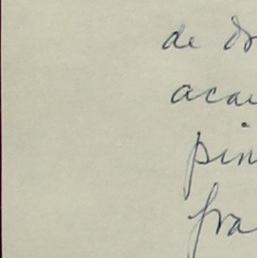 de dr
acai
pin
fra